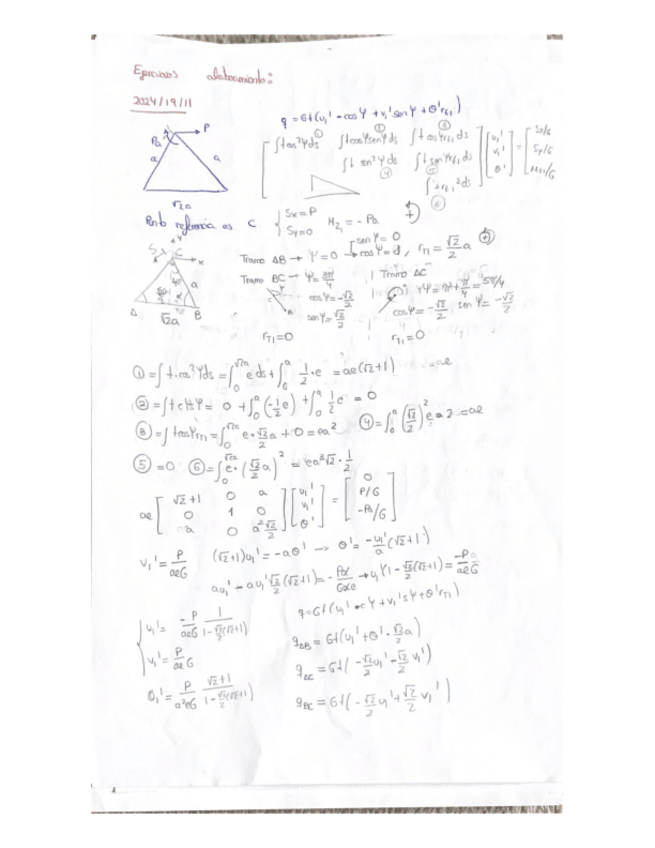 Ejercicios
2024/19/11
q = Gt(u₁' · cos Ψ + v₁' sen Ψ + θ' r₁₁)
P
Pa
a a
√2a
[∫t cos²Ψ ds ① ∫t cosΨ senΨ ds ② ∫t cosΨ r₁₁ ds ③
∫t sen²Ψ ds ④ ∫t senΨ r₁₁ ds ⑤
∫t r₁₁² ds ⑥] [u₁' v₁' θ'] = [Sx/G Sy/G Mz₁/G]
Punto referencia es C { Sx = P Sy = 0 Mz₁ = -Pa
C
x
a
A B
√2a
Tramo AB → Ψ = 0 → sen Ψ = 0 cos Ψ = 1, r₁₁ = √2/2 a
Tramo BC → Ψ = 3π/4 | Tramo AC
cos Ψ = -√2/2 sen Ψ = √2/2
Ψ = π + π/4 = 5π/4
cos Ψ = -√2/2 sen Ψ = -√2/2
r₁₁ = 0 r₁₁ = 0
① = ∫t · cos²Ψ ds = ∫₀^√2a e ds + ∫₀^a 1/2 · e = ae(√2+1)
② = 0 + ∫₀^a (-1/2 e) + ∫₀^a 1/2 e = 0
③ = ∫t cosΨ r₁₁ = ∫₀^√2a e · √2/2 a + 0 = ea² ④ = ∫₀^a (√2/2)² e · 2 = ae
⑤ = 0 ⑥ = ∫₀^√2a e · (√2/2 a)² = ea³√2 · 1/2
ae [√2+1 0 a
0 1 0
a 0 a²√2/2] [u₁' v₁' θ'] = [0 P/G -Pa/G]
v₁' = P/aeG (√2+1)u₁' = -aθ' → θ' = -u₁'/a (√2+1)
au₁' - au₁' √2/2 (√2+1) = -Pa/Gae → u₁'(1 - √2/2(√2+1)) = -P/aeG
q = Gt(u₁' · cΨ + v₁' sΨ + θ' r₁₁)
u₁' = -P/aeG 1/(1-√2/2(√2+1))
q_AB = Gt(u₁' + θ' · √2/2 a)
v₁' = P/aeG
q_AC = Gt(-√2/2 u₁' - √2/2 v₁')
θ₁' = P/a²eG (√2+1)/(1-√2/2(√2+1))
q_BC = Gt(-√2/2 u₁' + √2/2 v₁')